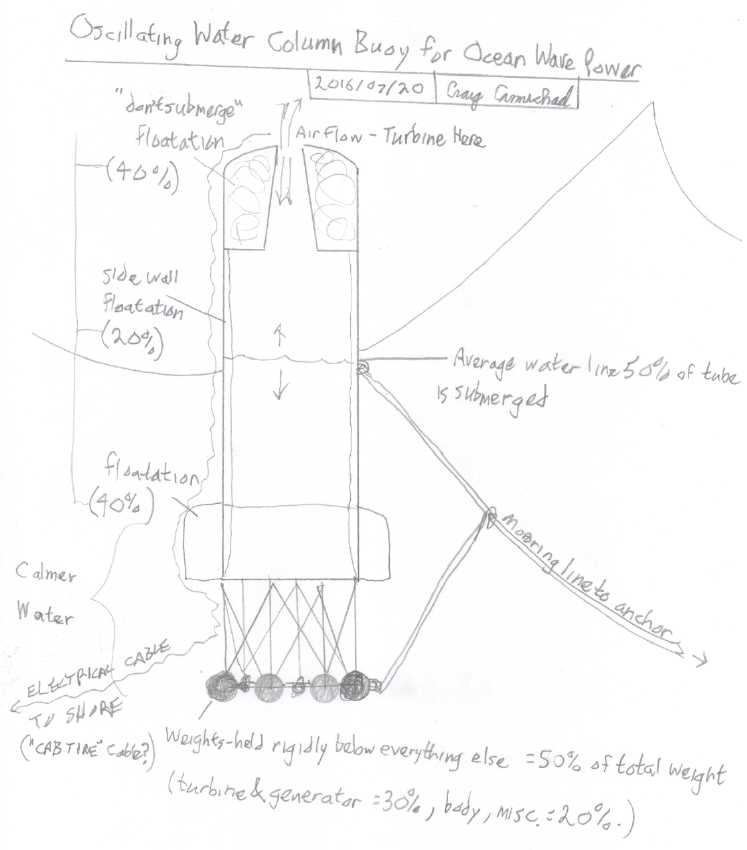 Oscillating Water Column Buoy for Ocean Wave Power
2016/07/20 Craig Carmichael
"don't submerge"
floatation
(40%)
Air Flow - Turbine Here
side wall
floatation
(20%)
Average water line 50% of tube
is submerged
floatation
(40%)
Calmer
Water
Mooring line to anchor
ELECTRICAL CABLE
TO SHORE
("CABTIRE" Cable?)
Weights-held rigidly below everything else =50% of total weight
(turbine & generator =30%, body, misc.=20%.)